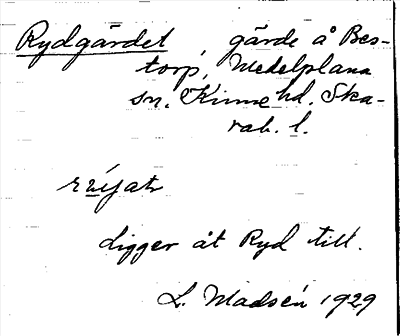 Rydgärdet, gärde å Bes-
torp, Medelplana
sn. Kinne hd. Ska-
rab. l.
Ligger åt Ryd till.
L. Madsén 1929